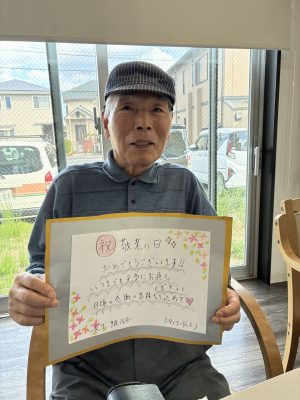 祝 敬老の日
おめでとうございます!!
いつまでもお元気にお過し
ください
日頃の感謝の気持ちを込めて
スタッフ一同より